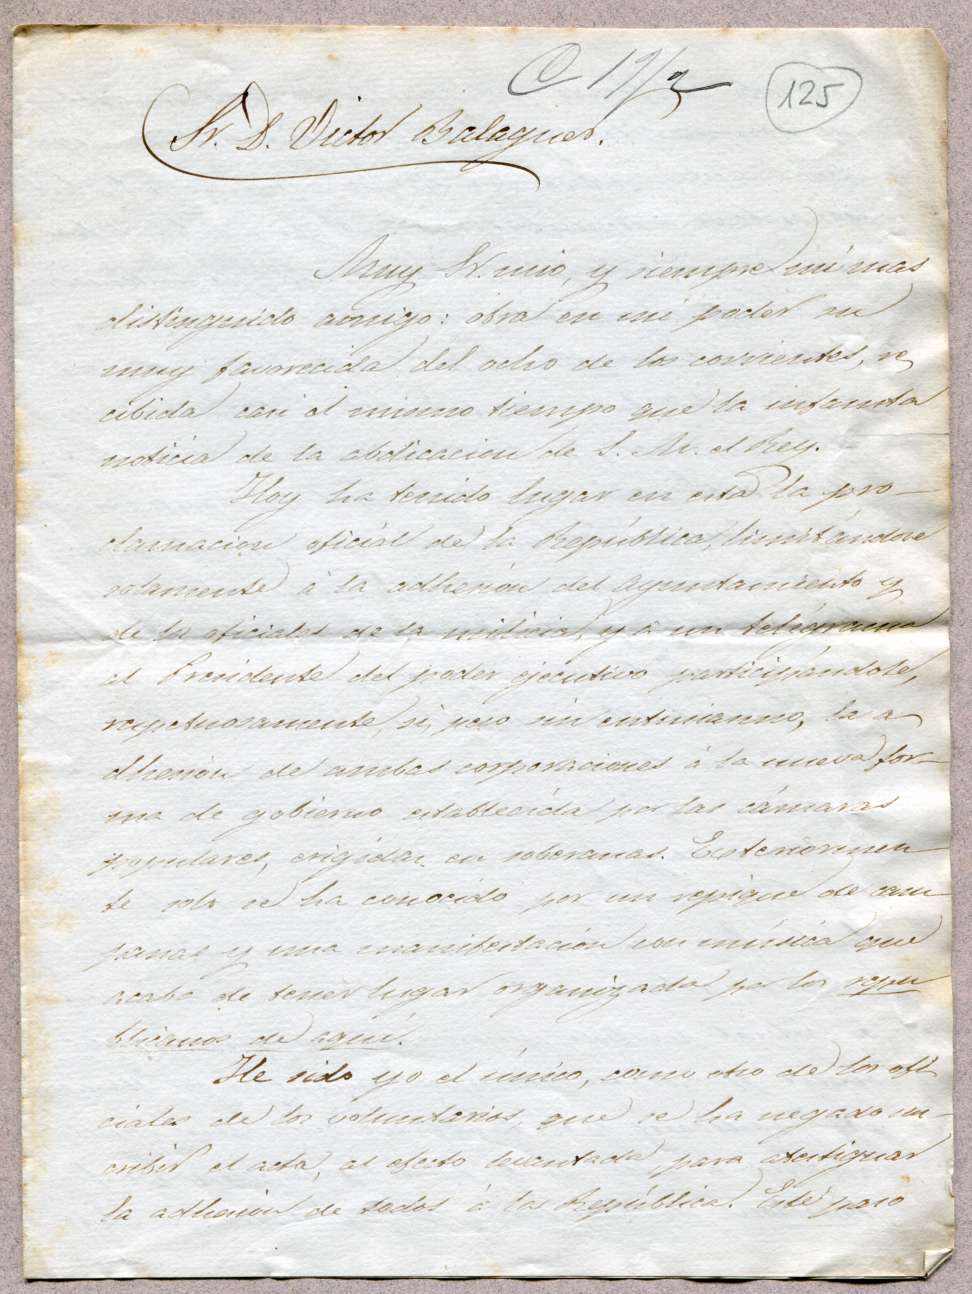 C 19/2
125
Sr. D. Victor Balaguer.
Muy Sr. mio, y siempre mi mas
distinguido amigo: obra en mi poder su
muy favorecida del ocho de los corrientes, re
cibida casi al mismo tiempo que la infausta
noticia de la abdicacion de S. M. el Rey.
Hoy ha tenido lugar en esta la pro-
clamacion oficial de la República, limitándose
solamente á la adhesión del Ayuntamiento y
de los oficiales de la milicia, y á un telégrama
al Presidente del poder ejecutivo participándole,
respetuosamente, si, pero sin entusiasmo, la a
dhesión de ambas corporaciones á la nueva for-
ma de gobierno establecida por las cámaras
populares, erigidas en soberanas. Exteriormen-
te solo se ha conocido por un repique de cam
panas y una manifestación con música que
acaba de tener lugar organizada por los repu
blicanos de aquí.
He sido yo el único, como otro de los ofi
ciales de los voluntarios, que se ha negado sus-
cribir el acta, al efecto levantada, para atestiguar
la adhesión de todos á la República. Este paso